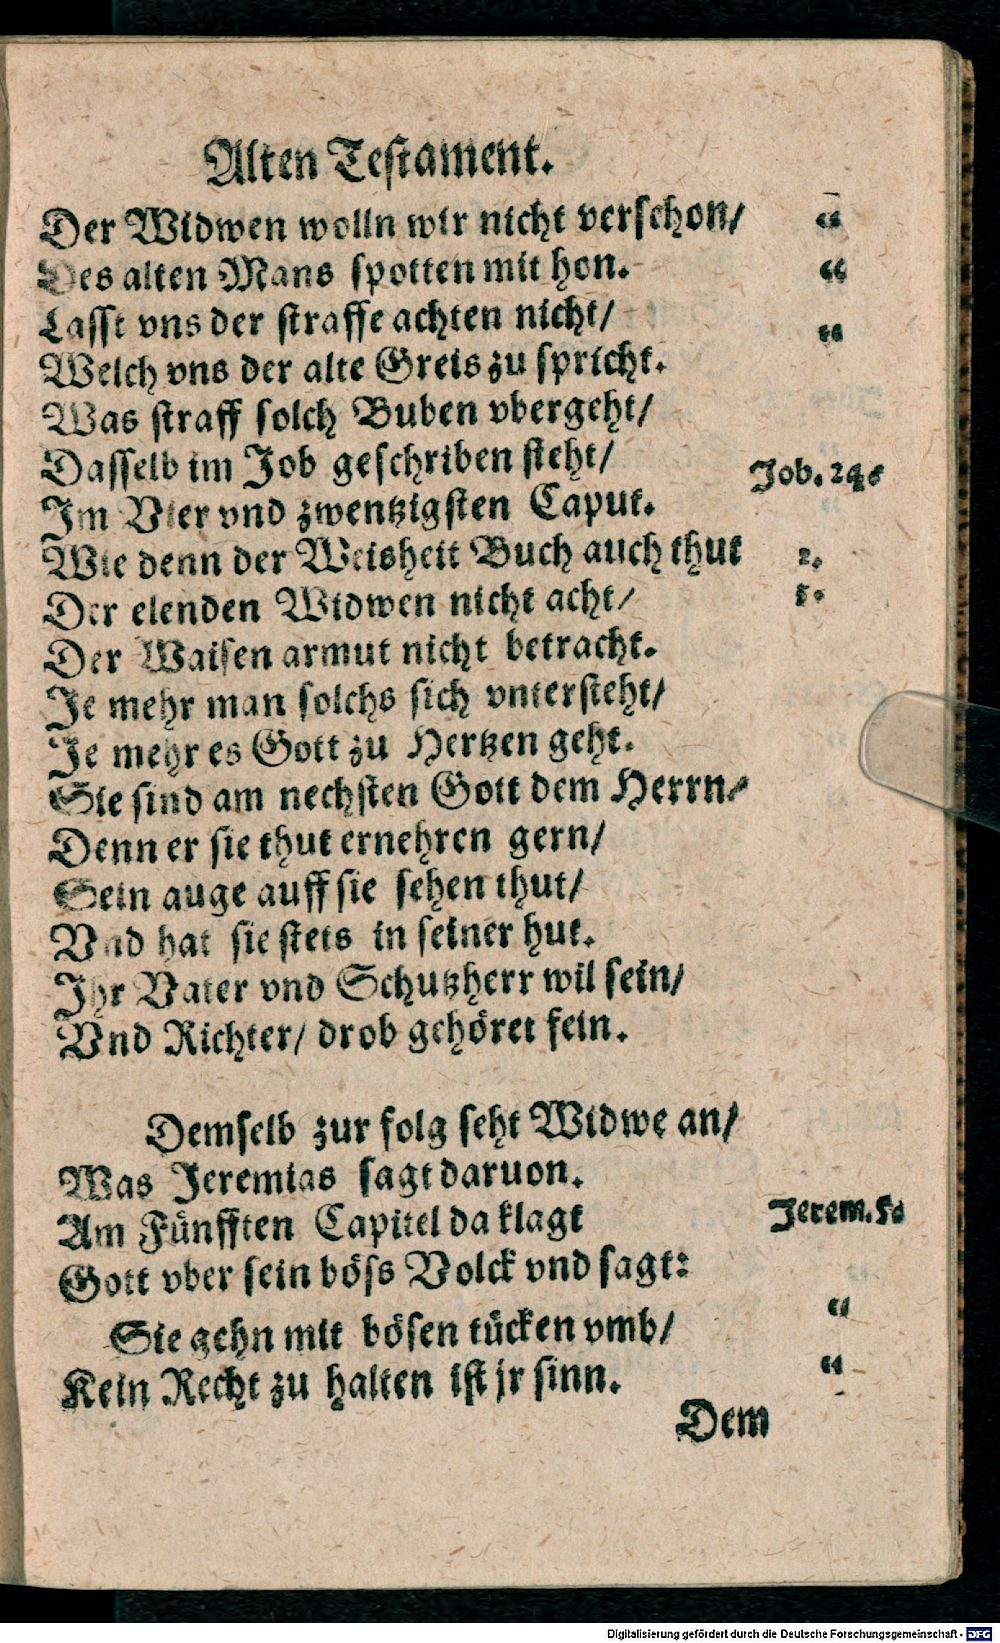 Alten Testament.
Der Widwen wolln wir nicht verschon/ “
Des alten Mans spotten mit hon. “
Lasst vns der straffe achten nicht/ “
Welch vns der alte Greis zu spricht.
Was straff solch Buben vbergeht/
Dasselb im Job geschriben steht/ Job. 24.
Im Vier vnd zwentzigsten Caput.
Wie denn der Weisheit Buch auch thut 2.
Der elenden Widwen nicht acht/ 5.
Der Waisen armut nicht betracht.
Je mehr man solchs sich vntersteht/
Je mehr es Gott zu Hertzen geht.
Sie sind am nechsten Gott dem Herrn/
Denn er sie thut ernehren gern/
Sein auge auff sie sehen thut/
Vnd hat sie stets in seiner hut.
Ihr Vater vnd Schutzherr wil sein/
Vnd Richter/ drob gehöret fein.
Demselb zur folg seht Widwe an/
Was Jeremias sagt daruon.
Am Fünfften Capitel da klagt Jerem. 5.
Gott vber sein böss Volck vnd sagt:
Sie gehn mit bösen tücken vmb/ “
Kein Recht zu halten ist jr sinn. “
Dem
Digitalisierung gefördert durch die Deutsche Forschungsgemeinschaft - DFG